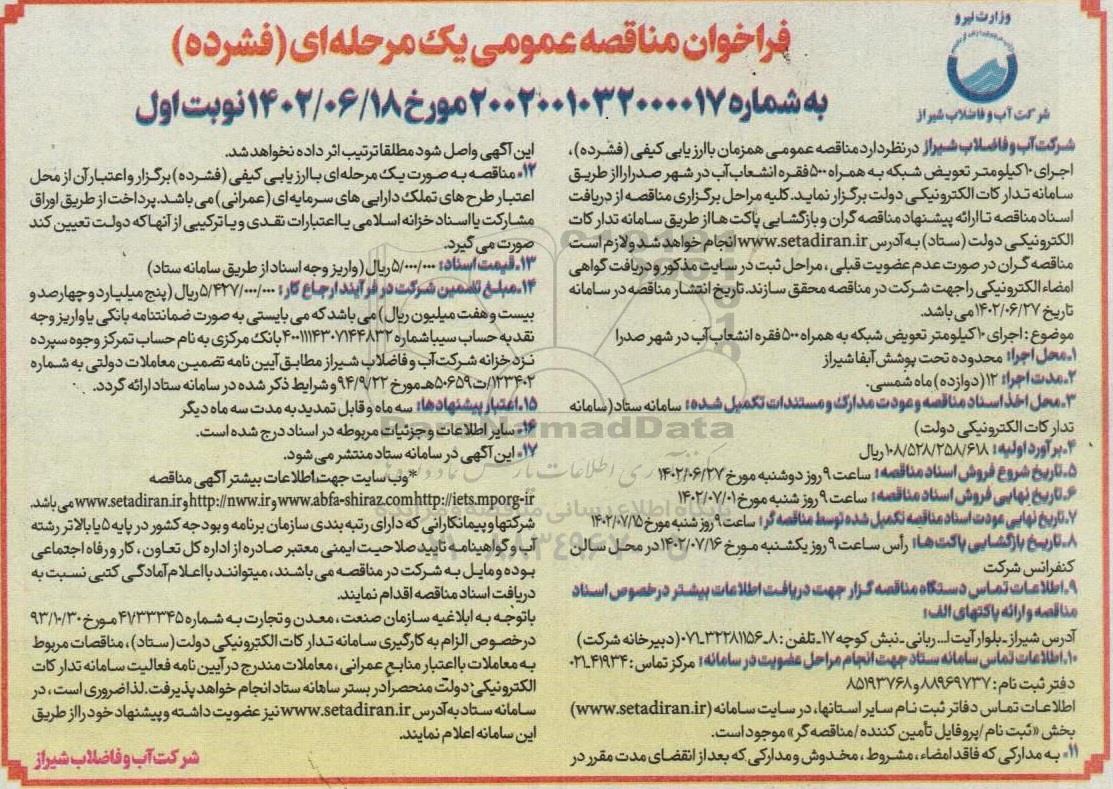 وزارت نیرو
شرکت آب و فاضلاب شیراز
فراخوان مناقصه عمومی یک مرحله‌ای (فشرده)
به شماره ۲۰۰۲۰۰۱۰۳۲۰۰۰۰۱۷ مورخ ۱۴۰۲/۰۶/۱۸ نوبت اول
شرکت آب و فاضلاب شیراز در نظر دارد مناقصه عمومی همزمان با ارزیابی کیفی (فشرده)،
اجرای ۱۰ کیلومتر تعویض شبکه به همراه ۵۰۰ فقره انشعاب آب در شهر صدرا را از طریق
سامانه تدارکات الکترونیکی دولت برگزار نماید. کلیه مراحل برگزاری مناقصه از دریافت
اسناد مناقصه تا ارائه پیشنهاد مناقصه گران و بازگشایی پاکت ها از طریق سامانه تدارکات
الکترونیکی دولت (ستاد) به آدرس www.setadiran.ir انجام خواهد شد و لازم است
مناقصه گران در صورت عدم عضویت قبلی، مراحل ثبت در سایت مذکور و دریافت گواهی
امضاء الکترونیکی را جهت شرکت در مناقصه محقق سازند. تاریخ انتشار مناقصه در سامانه
تاریخ ۱۴۰۲/۰۶/۲۷ می باشد.
موضوع: اجرای ۱۰ کیلومتر تعویض شبکه به همراه ۵۰۰ فقره انشعاب آب در شهر صدرا
۱.محل اجرا: محدوده تحت پوشش آبفا شیراز
۲.مدت اجرا: ۱۲ (دوازده) ماه شمسی.
۳.محل اخذ اسناد مناقصه و عودت مدارک و مستندات تکمیل شده: سامانه ستاد (سامانه
تدارکات الکترونیکی دولت)
۴.برآورد اولیه: ۱۰۸/۵۲۸/۲۵۸/۶۱۸ ریال
۵.تاریخ شروع فروش اسناد مناقصه: ساعت ۹ روز دوشنبه مورخ ۱۴۰۲/۰۶/۲۷
۶.تاریخ نهایی فروش اسناد مناقصه: ساعت ۹ روز شنبه مورخ ۱۴۰۲/۰۷/۰۱
۷.تاریخ نهایی عودت اسناد مناقصه تکمیل شده توسط مناقصه گر: ساعت ۹ روز شنبه مورخ ۱۴۰۲/۰۷/۱۵
۸.تاریخ بازگشایی پاکت ها: رأس ساعت ۹ روز یکشنبه مورخ ۱۴۰۲/۰۷/۱۶ در محل سالن
کنفرانس شرکت
۹.اطلاعات تماس دستگاه مناقصه گزار جهت دریافت اطلاعات بیشتر در خصوص اسناد
مناقصه و ارائه پاکتهای الف:
آدرس شیراز ـ بلوار آیت ا... ربانی ـ نبش کوچه ۱۷ ـ تلفن: ۸ـ۳۲۲۸۱۱۵۶ـ۰۷۱ (دبیرخانه شرکت)
۱۰.اطلاعات تماس سامانه ستاد جهت انجام مراحل عضویت در سامانه: مرکز تماس: ۴۱۹۳۴ـ۰۲۱
دفتر ثبت نام: ۸۸۹۶۹۷۳۷ و ۸۵۱۹۳۷۶۸
اطلاعات تماس دفاتر ثبت نام سایر استانها، در سایت سامانه (www.setadiran.ir)
بخش «ثبت نام/پروفایل تأمین کننده/مناقصه گر» موجود است.
۱۱. به مدارکی که فاقد امضاء، مشروط، مخدوش و مدارکی که بعد از انقضای مدت مقرر در
این آگهی واصل شود مطلقا ترتیب اثر داده نخواهد شد.
۱۲. مناقصه به صورت یک مرحله ای با ارزیابی کیفی (فشرده) برگزار و اعتبار آن از محل
اعتبار طرح های تملک دارایی های سرمایه ای (عمرانی) می باشد. پرداخت از طریق اوراق
مشارکت یا اسناد خزانه اسلامی یا اعتبارات نقدی و یا ترکیبی از آنها که دولت تعیین کند
صورت می گیرد.
۱۳.قیمت اسناد: ۵/۰۰۰/۰۰۰ ریال (واریز وجه اسناد از طریق سامانه ستاد)
۱۴.مبلغ تضمین شرکت در فرآیند ارجاع کار: ۵/۴۲۷/۰۰۰/۰۰۰ ریال (پنج میلیارد و چهارصد و
بیست و هفت میلیون ریال) می باشد که می بایستی به صورت ضمانتنامه بانکی یا واریز وجه
نقد به حساب سیبا شماره ۴۰۰۱۱۱۴۳۰۷۱۴۴۸۳۲ بانک مرکزی به نام حساب تمرکز وجوه سپرده
نزد خزانه شرکت آب و فاضلاب شیراز مطابق آیین نامه تضمین معاملات دولتی به شماره
۱۲۳۴۰۲/ت۵۰۶۵۹هـ مورخ ۹۴/۹/۲۲ و شرایط ذکر شده در سامانه ستاد ارائه گردد.
۱۵.اعتبار پیشنهادها: سه ماه و قابل تمدید به مدت سه ماه دیگر
۱۶. سایر اطلاعات و جزئیات مربوطه در اسناد درج شده است.
۱۷. این آگهی در سامانه ستاد منتشر می شود.
*وب سایت جهت اطلاعات بیشتر آگهی مناقصه
www.abfa-shiraz.com http://iets.mporg-ir و http://nww.ir و www.setadiran.ir می باشد.
شرکتها و پیمانکارانی که دارای رتبه بندی سازمان برنامه و بودجه کشور در پایه ۵ یا بالاتر رشته
آب و گواهینامه تایید صلاحیت ایمنی معتبر صادره از اداره کل تعاون، کار و رفاه اجتماعی
بوده و مایل به شرکت در مناقصه می باشند، میتوانند با اعلام آمادگی کتبی نسبت به
دریافت اسناد مناقصه اقدام نمایند.
با توجه به ابلاغیه سازمان صنعت، معدن و تجارت به شماره ۴۷۳۳۳۴۵ مورخ ۹۳/۱۰/۳۰
در خصوص الزام به کارگیری سامانه تدارکات الکترونیکی دولت (ستاد)، مناقصات مربوط
به معاملات با اعتبار منابع عمرانی، معاملات مندرج در آیین نامه فعالیت سامانه تدارکات
الکترونیکی دولت منحصراً در بستر سامانه ستاد انجام خواهد پذیرفت. لذا ضروری است، در
سامانه ستاد به آدرس www.setadiran.ir نیز عضویت داشته و پیشنهاد خود را از طریق
این سامانه اعلام نمایند.
شرکت آب و فاضلاب شیراز
ParsNamadData